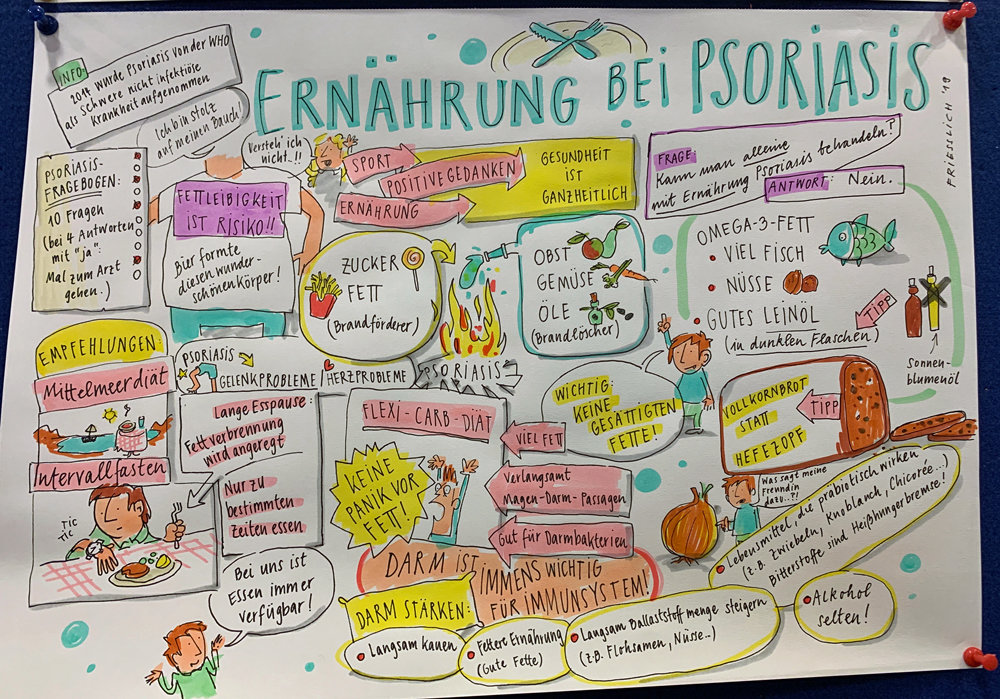 ERNÄHRUNG BEI PSORIASIS
PRIESSLICH '19
INFO:
2014 wurde Psoriasis von der WHO
als Schwere nicht infektiöse
Krankheit aufgenommen
Ich bin stolz
auf meinen Bauch!
Versteh' ich
nicht..!!
PSORIASIS-
FRAGEBOGEN:
10 Fragen
(bei 4 Antworten
mit "ja":
Mal zum Arzt
gehen.)
FETTLEIBIGKEIT
IST RISIKO!!
Bier formte
diesen wunder-
schönen Körper!
SPORT
POSITIVE GEDANKEN
ERNÄHRUNG
GESUNDHEIT
IST
GANZHEITLICH
FRAGE:
Kann man alleine
mit Ernährung Psoriasis behandeln?
ANTWORT: Nein.
ZUCKER
FETT
(Brandförderer)
OBST
GEMÜSE
ÖLE
(Brandlöscher)
PSORIASIS
OMEGA-3-FETT
VIEL FISCH
NÜSSE
GUTES LEINÖL
(in dunklen Flaschen)
TIPP
Sonnen-
blumenöl
EMPFEHLUNGEN:
Mittelmeerdiät
Intervallfasten
TIC
TIC
PSORIASIS
GELENKPROBLEME / HERZPROBLEME
Lange Esspause:
Fettverbrennung
wird angeregt
Nur zu
bestimmten
Zeiten essen
Bei uns ist
Essen immer
verfügbar!
FLEXI-CARB-DIÄT
KEINE
PANIK VOR
FETT!
VIEL FETT
Verlangsamt
Magen-Darm-Passagen
Gut für Darmbakterien
WICHTIG:
KEINE
GESÄTTIGTEN
FETTE!
VOLLKORNBROT
STATT
HEFEZOPF
TIPP
Was sagt meine
Freundin
dazu..?!
Lebensmittel, die präbiotisch wirken
(z.B. Zwiebeln, Knoblauch, Chicorée...)
Bitterstoffe sind Heißhungerbremse!
DARM IST IMMENS WICHTIG
FÜR IMMUNSYSTEM!
DARM STÄRKEN:
Langsam kauen
Fettere Ernährung
(Gute Fette)
Langsam Ballaststoffmenge steigern
(z.B. Flohsamen, Nüsse..)
Alkohol
selten!